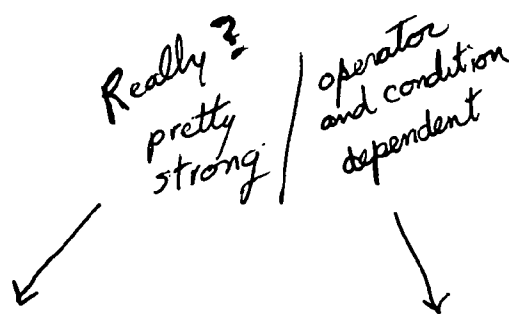 Really?
pretty
strong.
operator
and condition
dependent